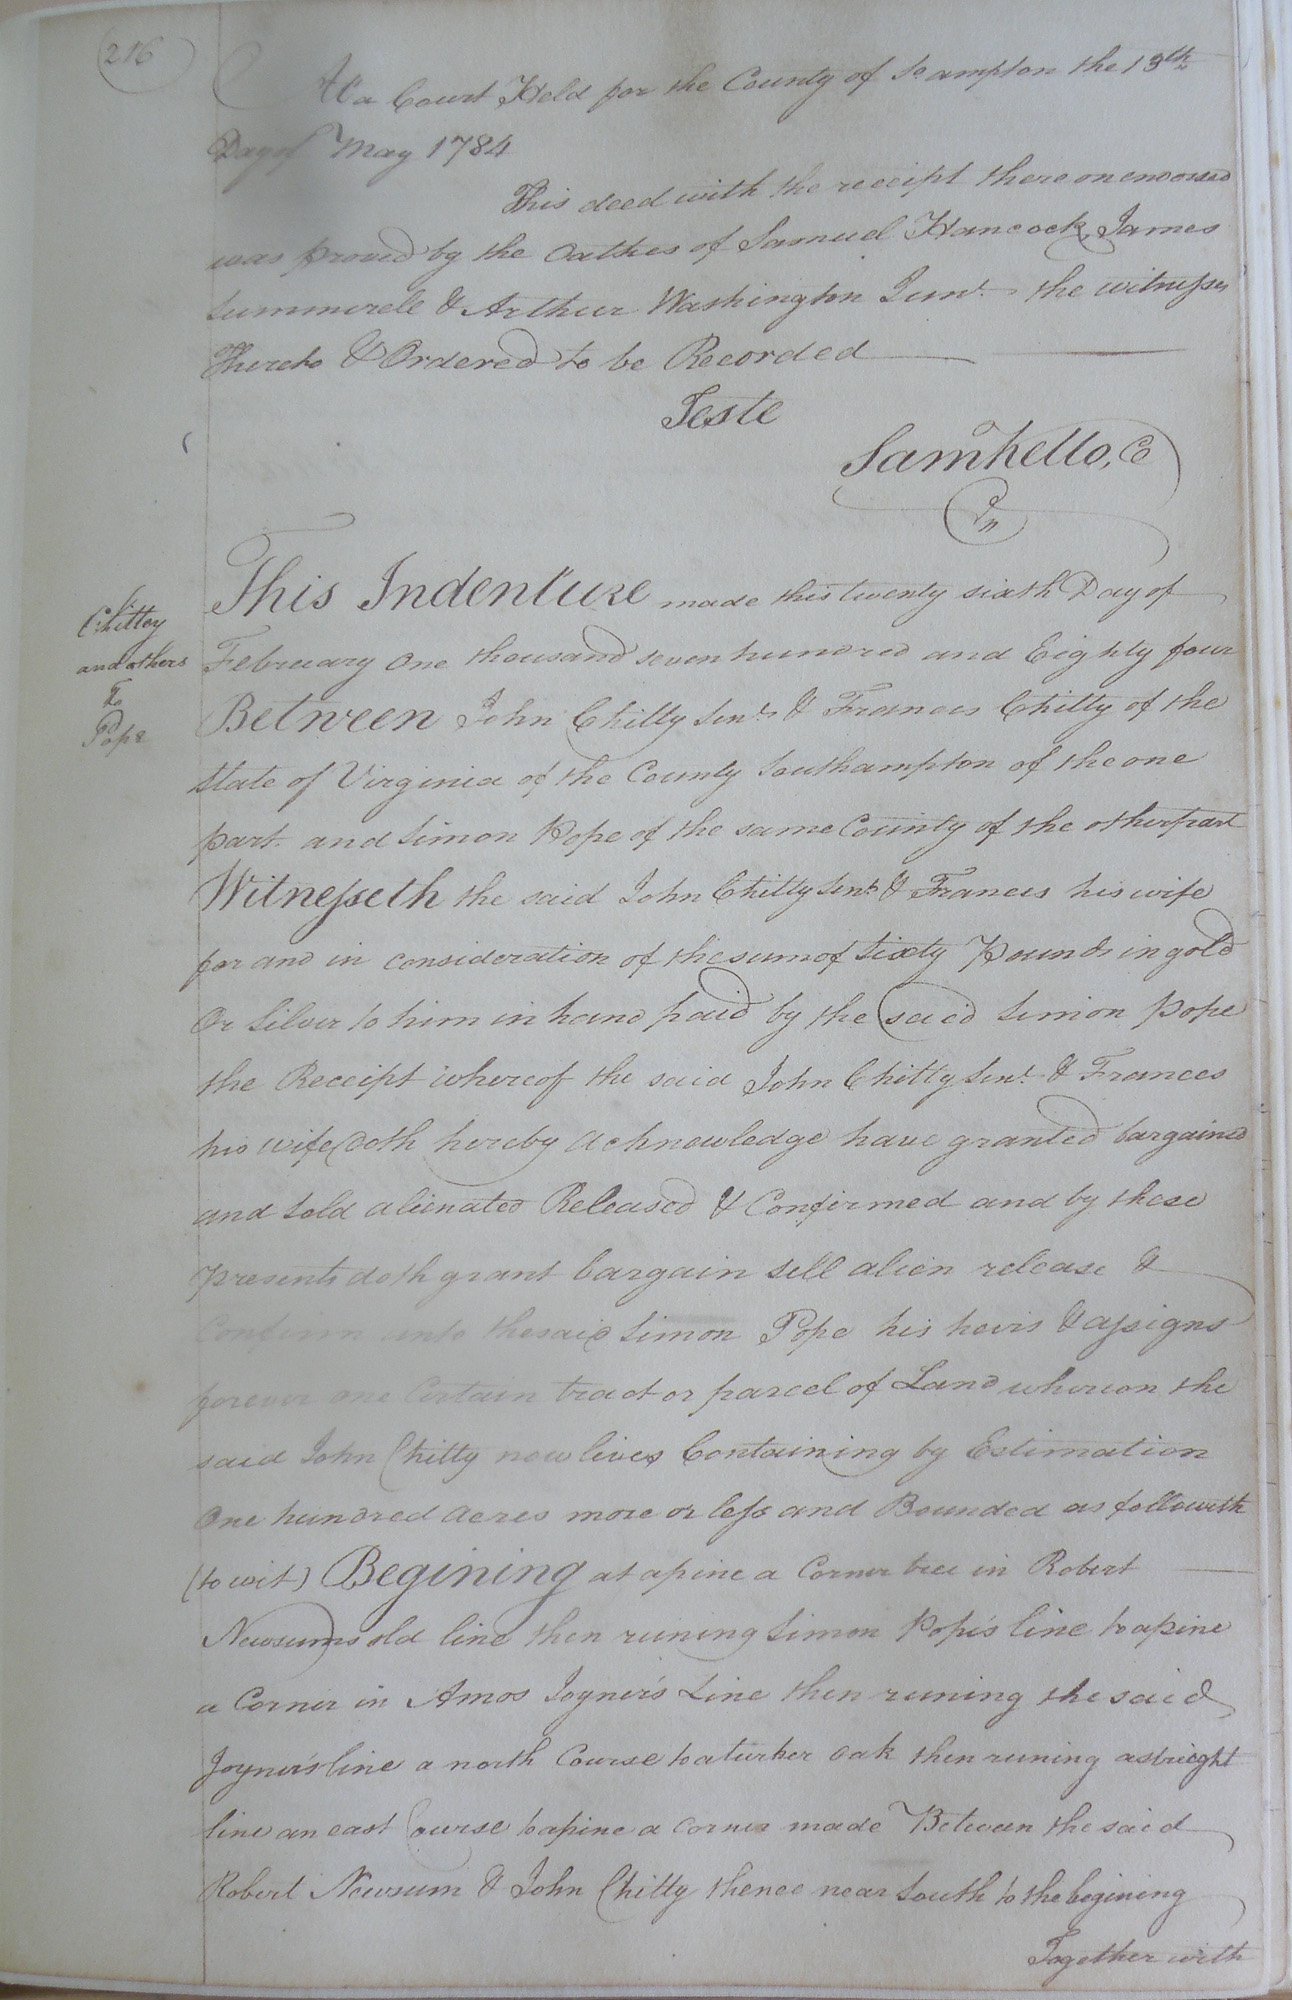 216
At a Court Held for the County of So ampton the 13th
Day of May 1784
This deed with the receipt thereon endorsed
was proved by the Oathes of Samuel Hancock, James
Summerell & Arthur Washington Junr. the witnesses
Thereto & Ordered to be Recorded
Teste
Saml Kello, C
Chittey
and others
To
Pope
This Indenture made this twenty sixth Day of
February One thousand seven hundred and Eighty four
Between John Chitty Senr. & Frances Chitty of the
State of Virginia of the County Southampton of the one
part and Simon Pope of the same County of the other part
Witnesseth the said John Chitty Senr. & Frances his wife
for and in consideration of the sum of Sixty Pounds in gold
Or Silver to him in hand paid by the said Simon Pope
the Receipt whereof the said John Chitty Senr. & Frances
his wife doth hereby acknowledge have granted bargained
and Sold alienated Released & Confirmed and by these
presents doth grant bargain sell alien release &
Confirm unto the said Simon Pope his heirs & assigns
forever one Certain tract or parcel of Land whereon the
said John Chitty now lives Containing by Estimation
One hundred acres more or less and Bounded as followeth
(to wit) Begining at a pine a Corner tree in Robert
Newsums old line then runing Simon Pope's line to a pine
a Corner in Amos Joyner's Line then runing the said
Joyner's line a north Course to a turker oak then runing a streight
line an east Course to a pine a corner made Between the said
Robert Newsum & John Chitty thence near South to the begining
Together with